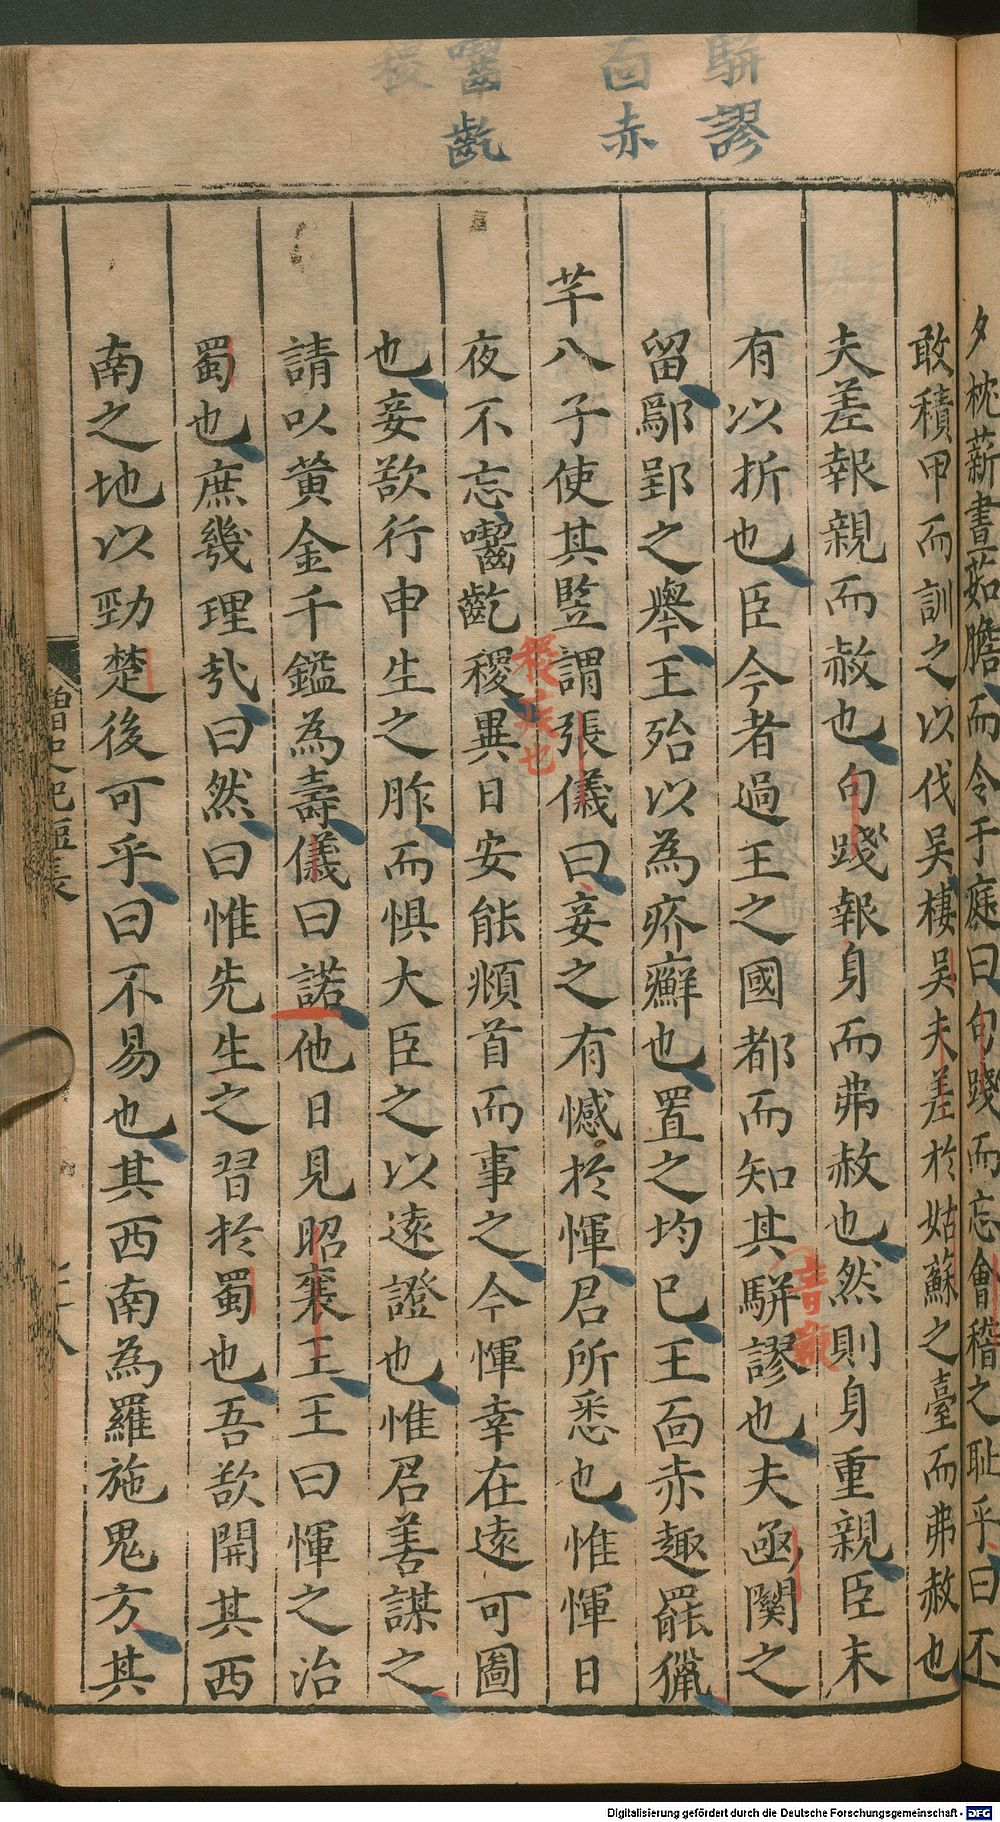 駢謬
面赤
齧齕
稷
夕枕薪晝茹膽而令于庭曰句踐而忘會稽之耻乎曰不
敢積甲而訓之以伐吳棲吳夫差於姑蘇之臺而弗赦也
夫差報親而赦也句踐報身而弗赦也然則身重親臣未
有以折也臣今者過王之國都而知其駢謬也夫函關之
音瓶
留鄢郢之舉王殆以為疥癬也置之均巳王面赤趣罷獵
羋八子使其豎謂張儀曰妾之有憾於惲君所悉也惟惲日
夜不忘齧齕稷異日安能頫首而事之今惲幸在遠可圖
稷疾也
也妾欲行申生之胙而惧大臣之以遠證也惟君善謀之
請以黄金千鎰為壽儀曰諾他日見昭襄王王曰惲之治
蜀也庶幾理乎曰然曰惟先生之習於蜀也吾欲開其西
南之地以勁楚後可乎曰不易也其西南為羅施鬼方其
Digitalisierung gefördert durch die Deutsche Forschungsgemeinschaft - DFG